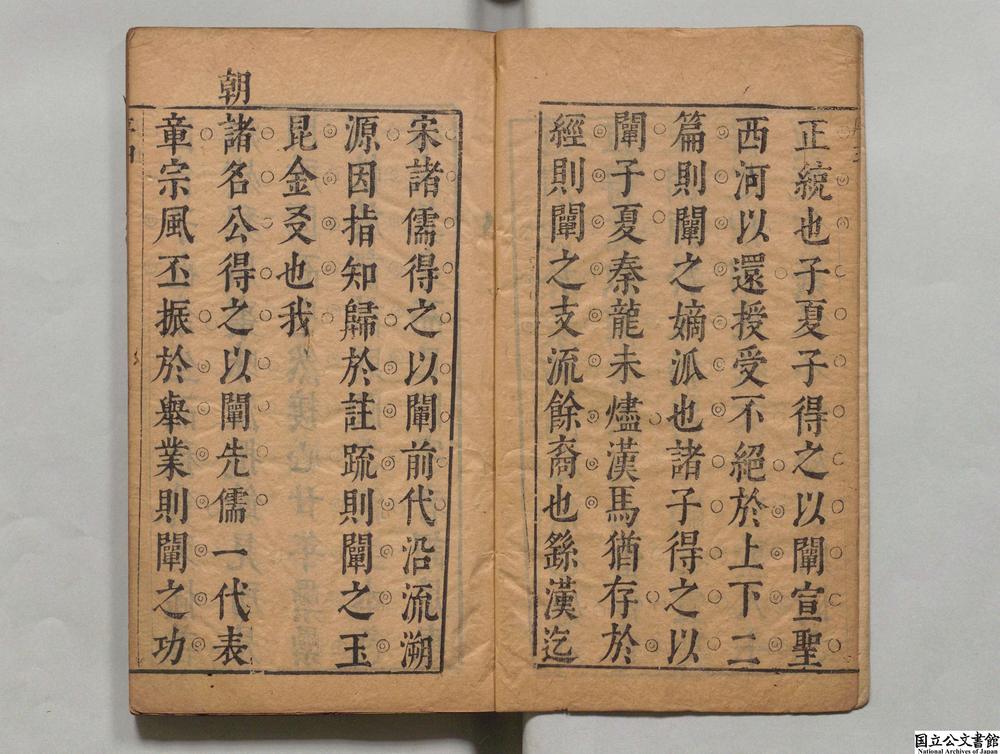 正統也子夏子得之以闡宣聖
西河以還授受不絕於上下二
篇則闡之嫡派也諸子得之以
闡子夏秦龍未燼漢馬猶存於
經則闡之支流餘裔也繇漢迄
宋諸儒得之以闡前代沿流溯
源因指知歸於註疏則闡之玉
昆金友也我
朝
諸名公得之以闡先儒一代表
章宗風丕振於舉業則闡之功
国立公文書館
National Archives of Japan